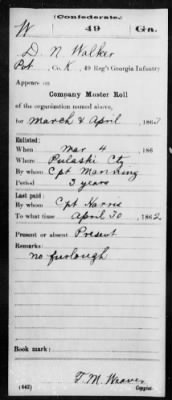 (Confederate.)
W 49 Ga.
D. N. Walker
Pvt, Co. K, 49 Reg't Georgia Infantry
Appears on
Company Muster Roll
of the organization named above,
for March & April, 1863
Enlisted:
When Mar 4, 186
Where Pulaski Cty
By whom Cpt Manning
Period 3 years
Last paid:
By whom Cpt Harris
To what time April 30, 1862
Present or absent Present
Remarks:
no furlough
Book mark:
T. M. Weaver
(642) Copyist.